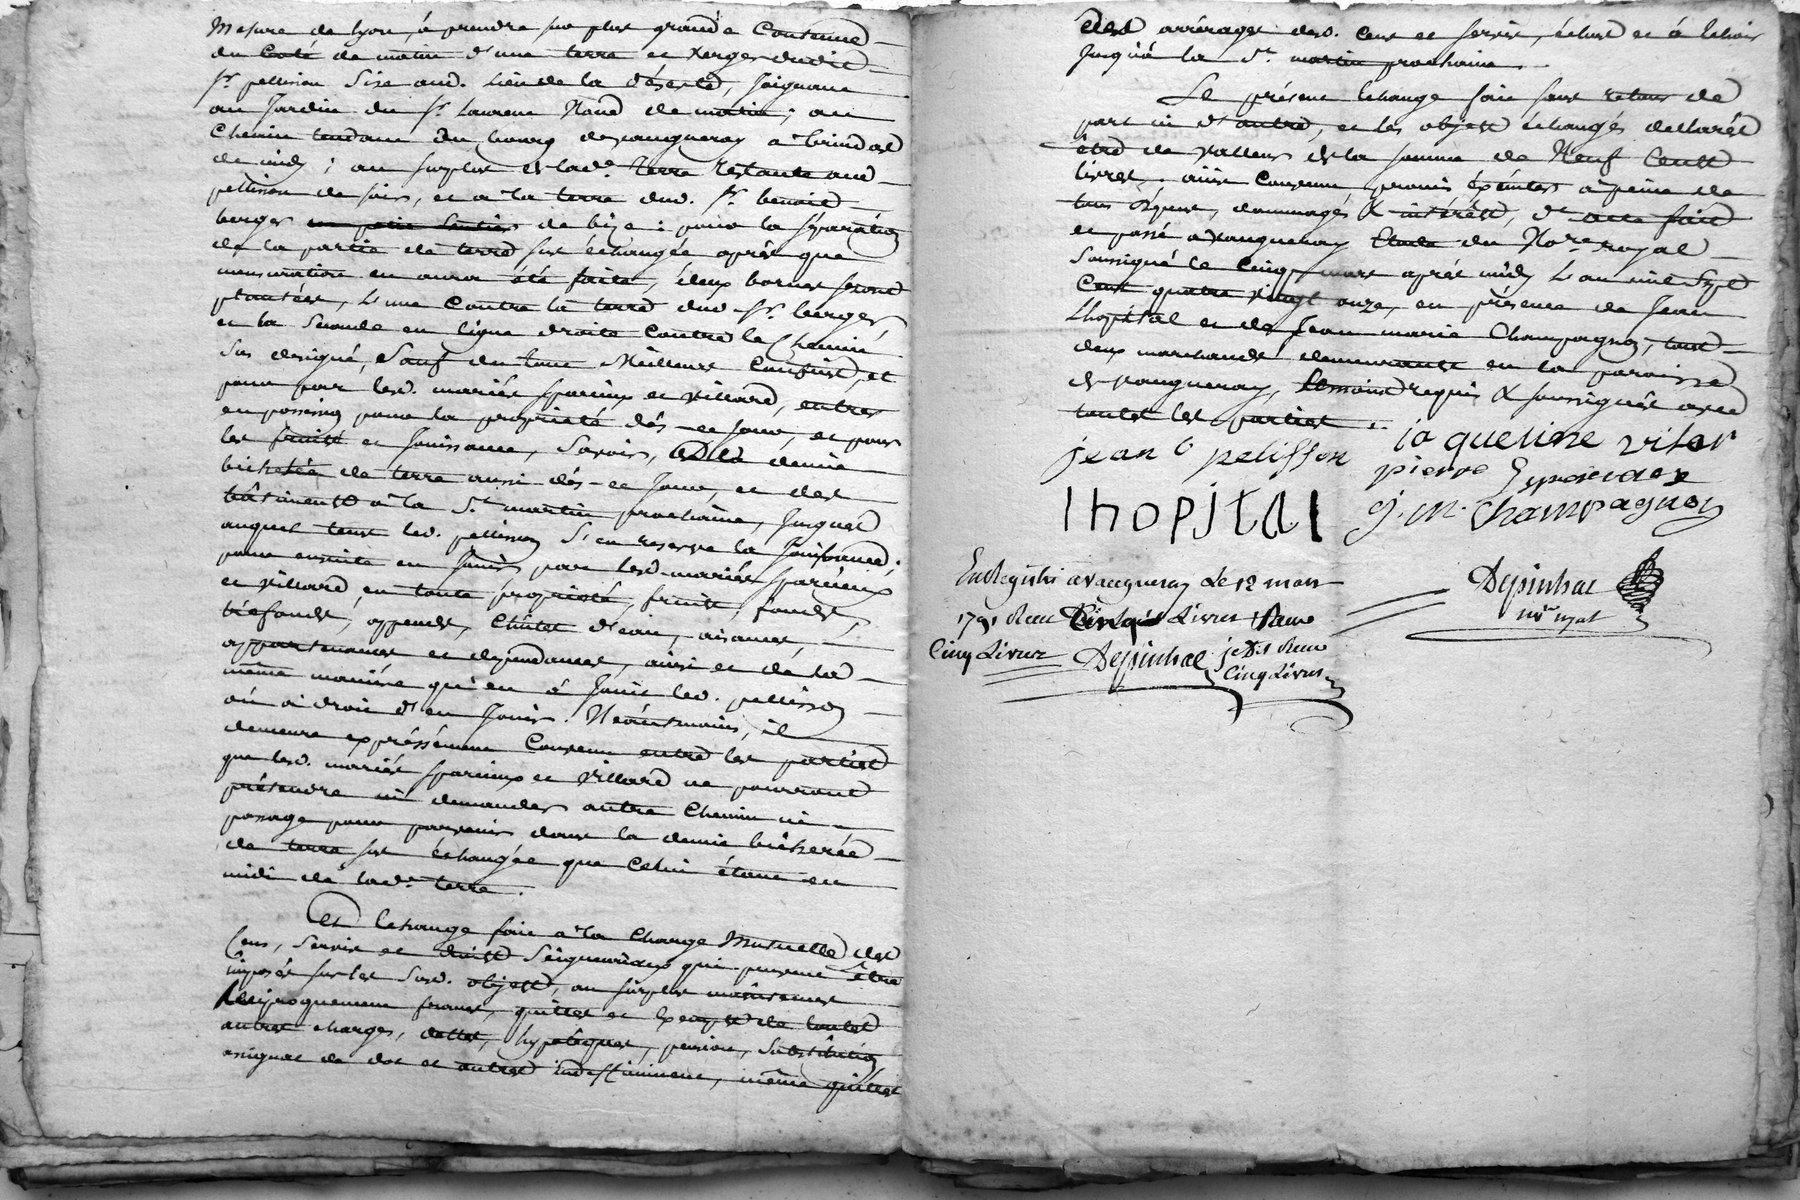 Mesure de lyon, à prendre sur plus grande Contenue
du Coté de matin d'une terre et verger dudit
Sr. pellisson Size aud. Lieu de la déserte, Joignant
au Jardin du Sr. Laurent Naud de matin; au
Chemin tendant du bourg devaugneray a brindas
de midy; au surplus de lad.e terre restante aud.
pellisson de soir, et a la terre dud. Sr. benoit
berger un petit Sentier de bize: pour la séparation
de la partie de terre sus échangée après que
mensuration en aura été faite, deux bornes seront
plantées, L'une Contre la terre dud. Sr. berger
et la Seconde en ligne droite Contre le Chemin
Sus designé, Sauf de tous Meilleurs Confins, et
pour par lesd. mariés sparcieux et villard, entrer
en possession pour la propriété dès-ce jour, et pour
les fruits et Jouissance, Savoir, de la demie
bicherée de terre aussi dès-ce jour, et des
bâtiments à la St. martin prochaine, Jusques
auquel tems led. pellisson S'en reserve la Jouissance;
pour ensuite en Jouir par lesd. mariés sparcieux
et villard en toute propriété, fruits, fonds,
tréfonds, appends, Chûtes d'eau, aisances,
appartenances et dependances, ainsi et de la
même manière qu'en à Jouit led. pellisson
où à droit d'en Jouir. Néantmoins, il
demeure expréssément Convenu entre les parties
que lesd. mariés sparcieux et villard ne pourront
prétendre ni demander autre Chemin ni
passage pour parvenir dans la demie bicherée
de terre sus échangée que Celui étant au
midi de lad.e terre.
Cet Echange fait a la Charge Mutuelle des
Cens, Servis et droits Seigneuriaux qui peuvent être
imposés sur les Susd. objets, au surplus
Reciproquement francs, quittes et Exempts de toutes
autres charges, dettes, hypotèques, pension, Substitution
assignat de dot et autres Indéfiniment, même quittes
des arrérages desd. cens et servis, échus et à Echoir
Jusqu'à la St. martin prochaine.
Le présent Echange fait sans retour de
part ni d'autre, et les objets échangés declarés
être de valleur de la somme de Neuf Cents
livres. ainsi Convenu, promis éxécuter à peine de
tous dépens, dommages & intérêts, dt. acte fait
et passé a vaugneray Etude du No.re royal
Soussigné le Cinq mars après midy L'an mil Sept
Cent quatre vingt onze, en présence de Jean
Lhopital et de Jean marie Champagnon, tout
deux marchands demeurants en la paroisse
de vaugneray, témoins requis & soussignés avec
toutes les parties.
jean C pelisson jaqueline vilar
pierre Sparcieux
lhopital j. m. Champagnon
Enregistré a vaugneray Le 12 mars
1791 Reçu Cinq Livres
Cinq Livres Depinhac
Cinq Livres
Depinhac
no.re royal